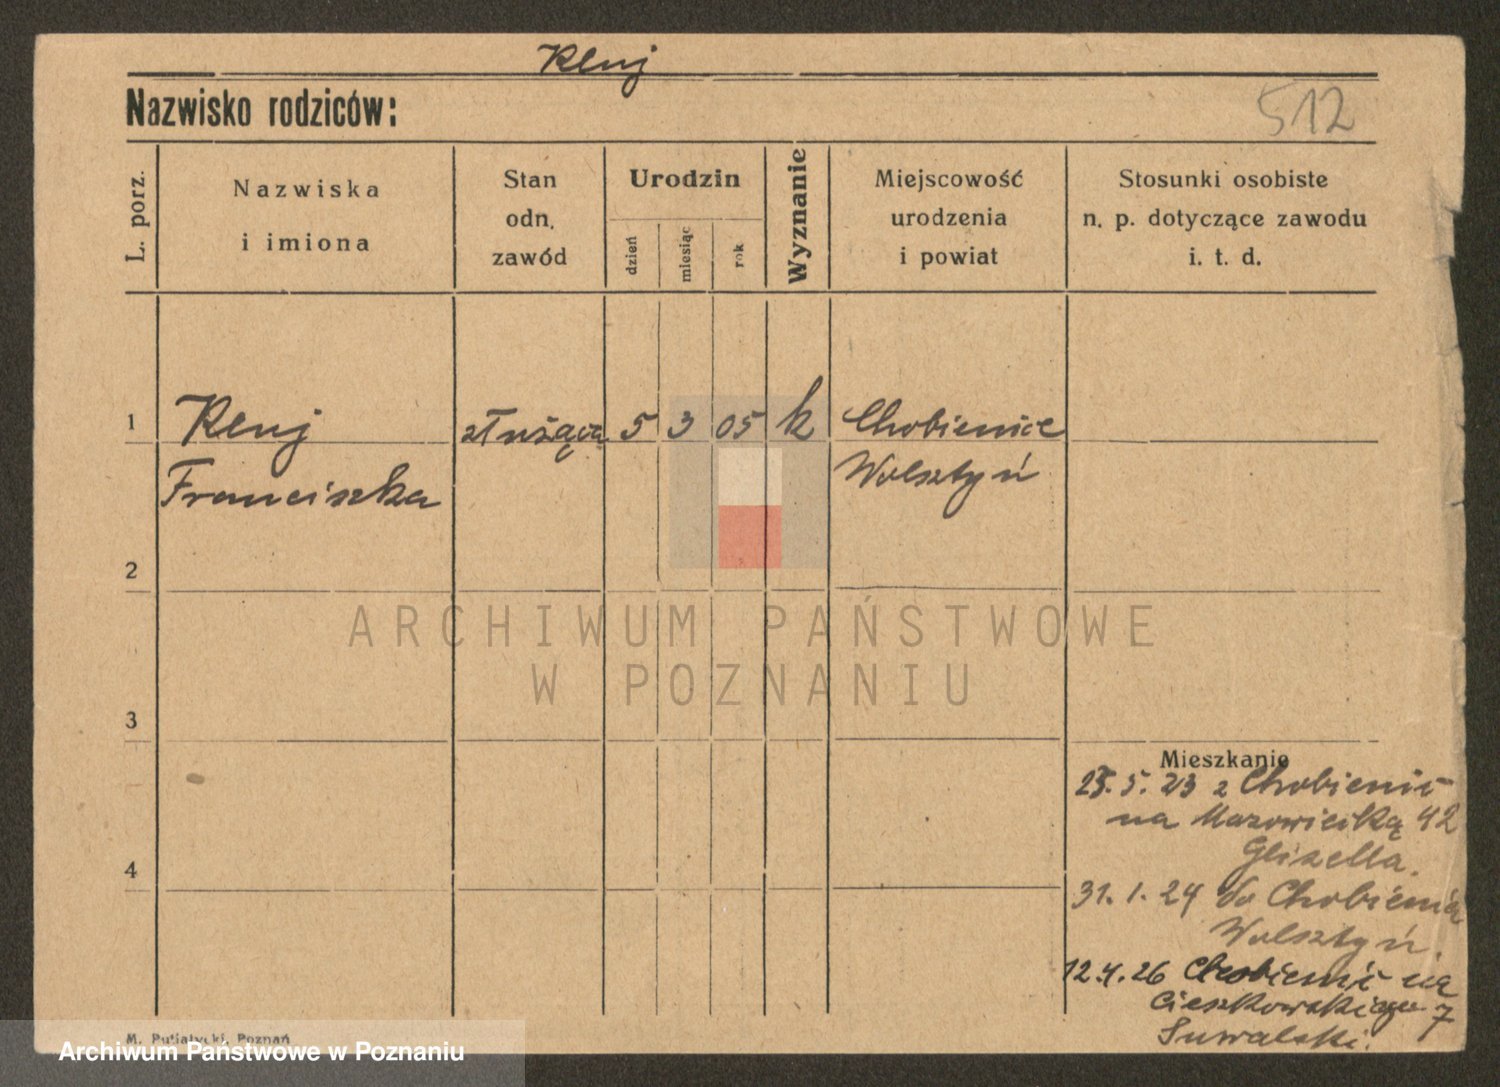 Kluj
Nazwisko rodziców:
512
L. porz.
Nazwiska
i imiona
Stan
odn.
zawód
Urodzin
dzień
miesiąc
rok
Wyznanie
Miejscowość
urodzenia
i powiat
Stosunki osobiste
n. p. dotyczące zawodu
i. t. d.
1
Kluj
Franciszka
służąca
5 3 05
k
Chobienice
Wolsztyń
2
3
4
Mieszkanie
25. 5. 23 z Chobienic
na Mazowiecką 42
Glizella.
31. 1. 24 do Chobienic
Wolsztyń.
12.4.26 Chobienic na
Cieszkowskiego 7
Suwalski.
M. Putiatycki, Poznań
ARCHIWUM PAŃSTWOWE
W POZNANIU
Archiwum Państwowe w Poznaniu